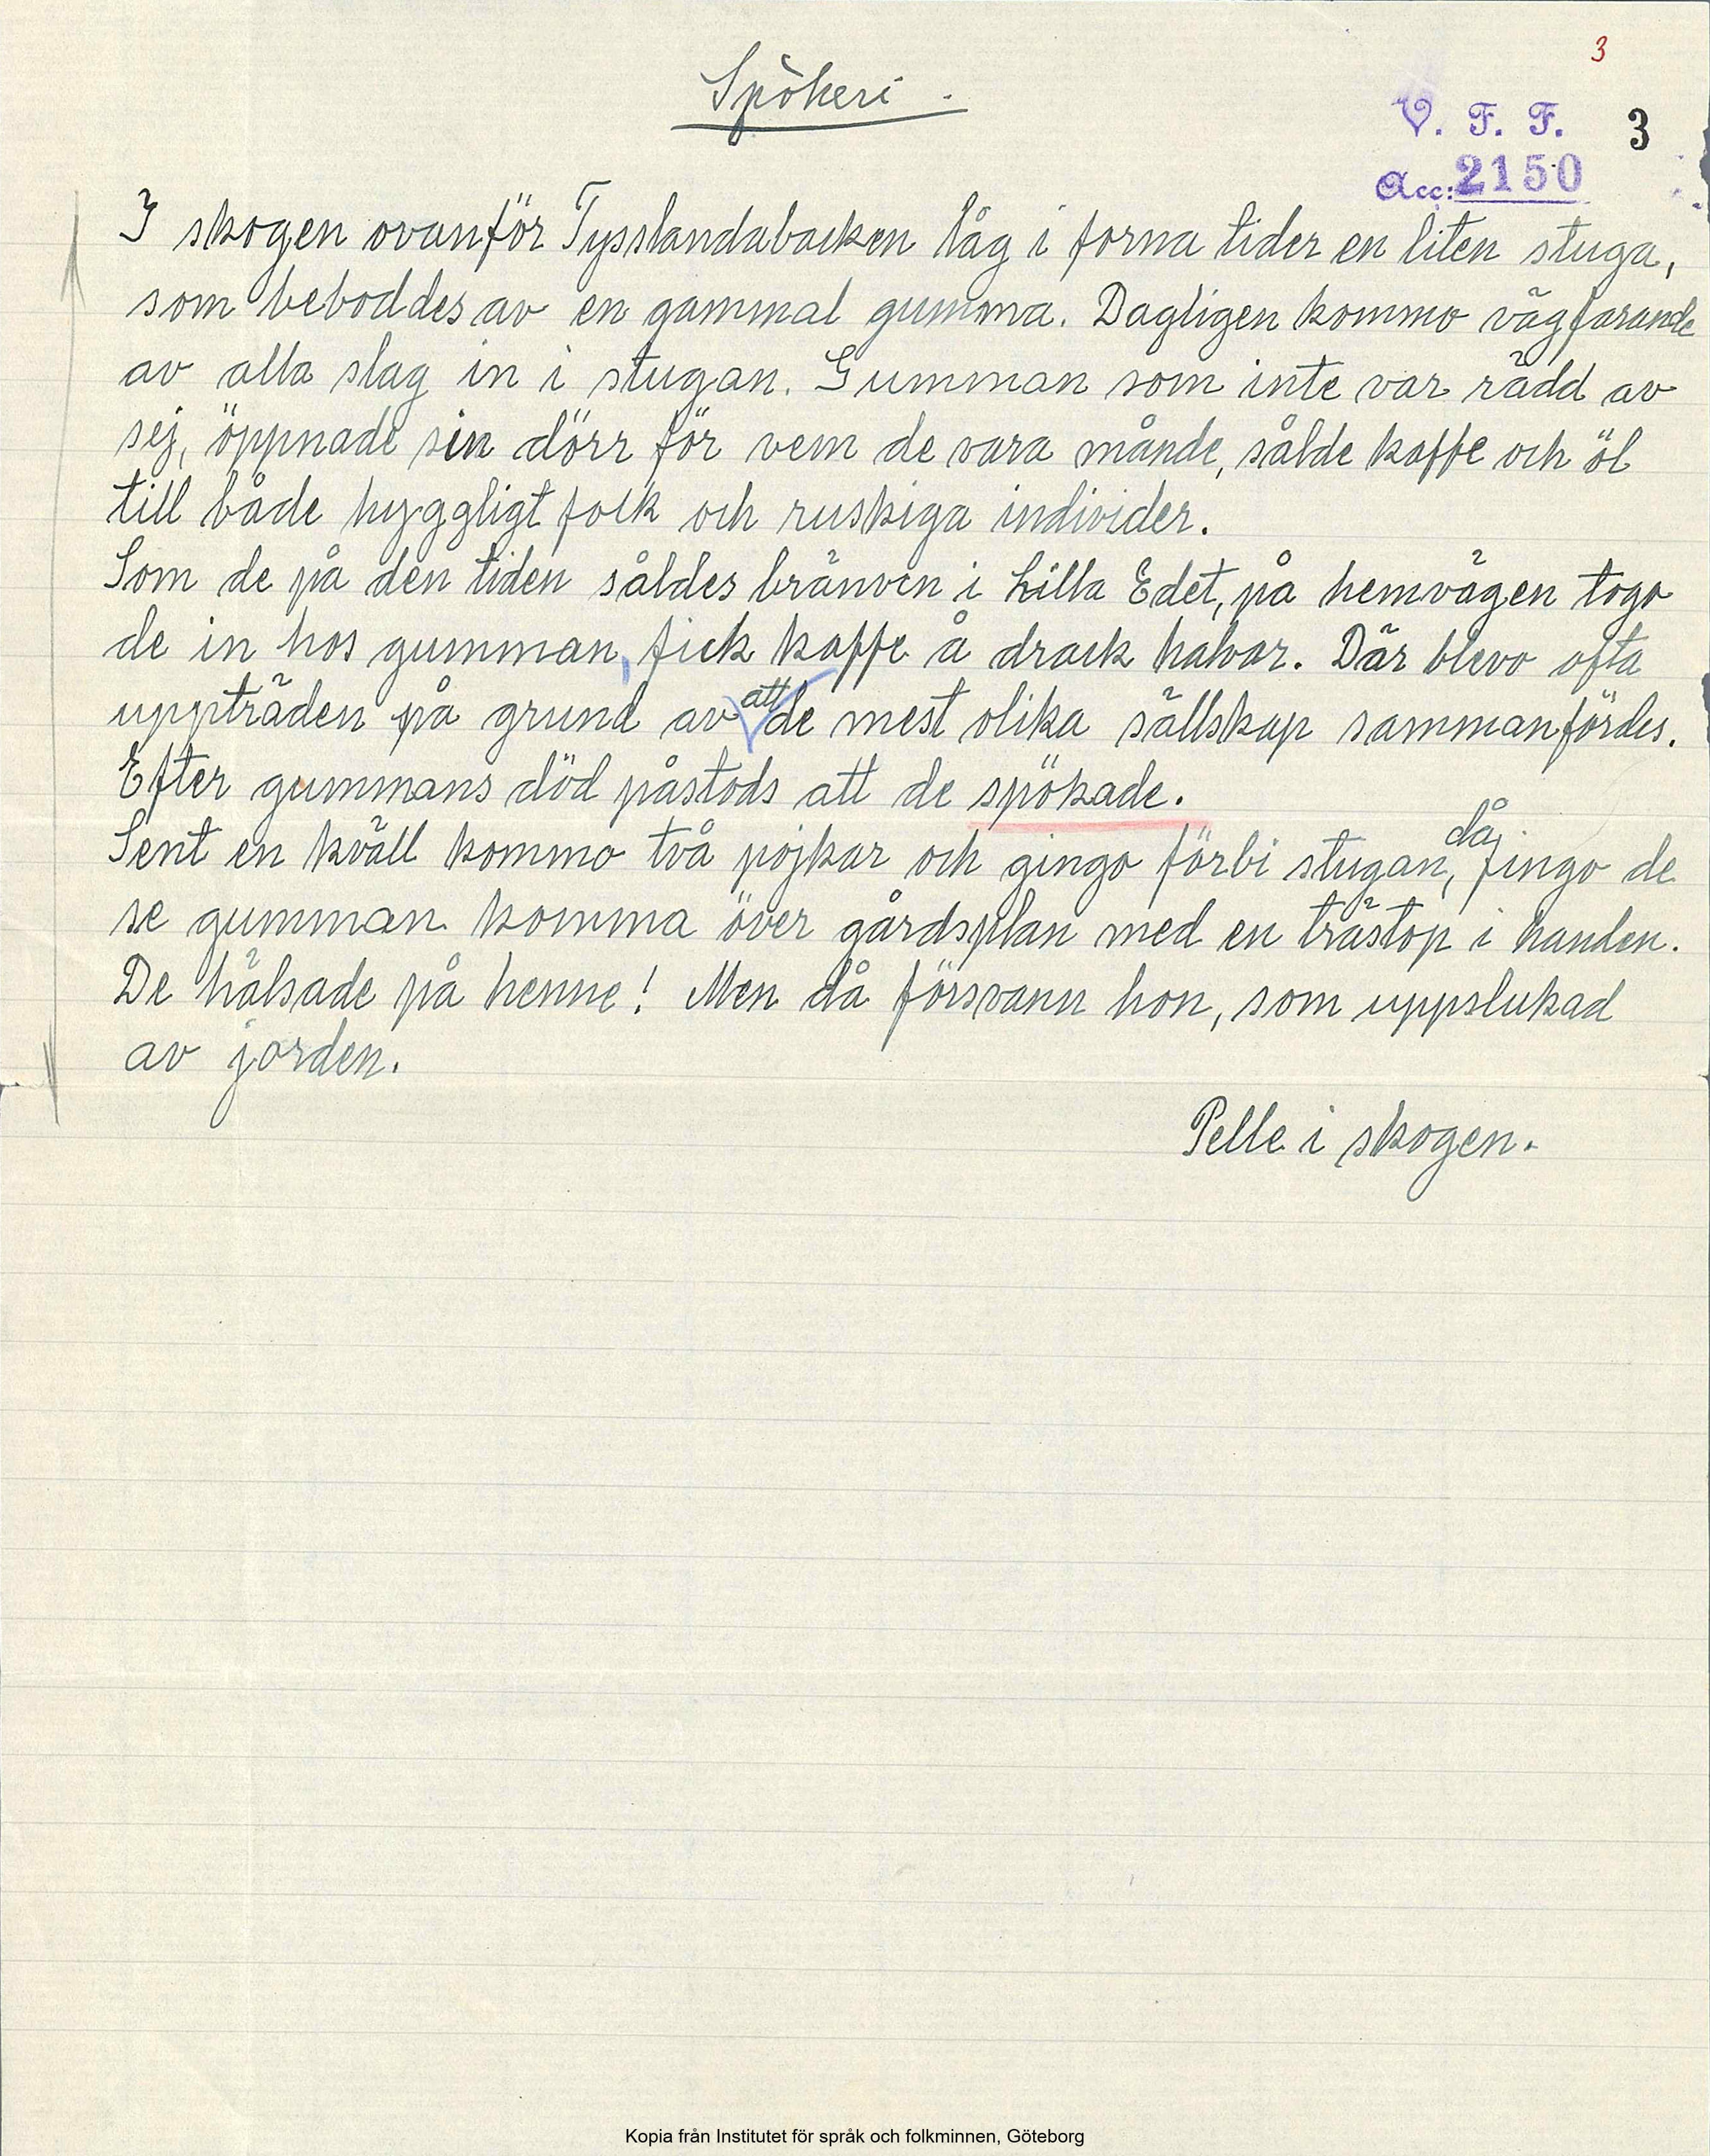 3
Spökeri.
V. F. F. 3
Acc: 2150
I skogen ovanför Tysslandabacken låg i forna tider en liten stuga,
som beboddes av en gammal gumma. Dagligen kommo vägfarande
av alla slag in i stugan. Gumman som inte var rädd av
sej, öppnade sin dörr för vem de vara månde, sålde kaffe och öl
till både hyggligt folk och ruskiga individer.
Som de på den tiden såldes bränvin i Lilla Edet, på hemvägen togo
de in hos gumman, fick kaffe å drack halvor. Där blevo ofta
uppträden på grund av att de mest olika sällskap sammanfördes.
Efter gummans död påstods att de spökade.
Sent en kväll kommo två pojkar och gingo förbi stugan, då fingo de
se gumman komma över gårdsplan med en trästop i handen.
De hälsade på henne! Men då försvann hon, som uppslukad
av jorden.
Pelle i skogen.
Kopia från Institutet för språk och folkminnen, Göteborg